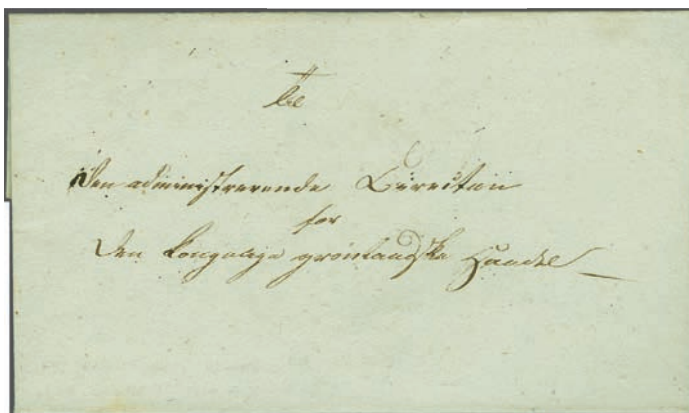 den administrerende Direction
for
den kongelige grönlandske Handel